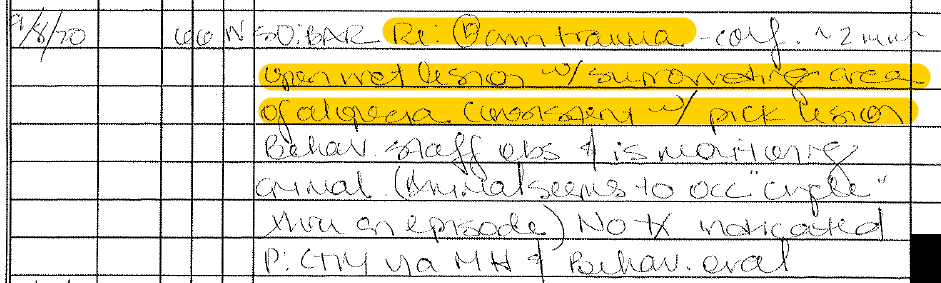 9/8/20 66 N SO: BAR Re: Ⓡ arm trauma - conf. ~2mm
open wet lesion w/ surrounding area
of alopecia consistent w/ pick lesion
Behav. staff obs & is monitoring
animal. (Animal seems to occ "cycle"
thru an episode) No tx indicated
P: CTM via MH & Behav. eval